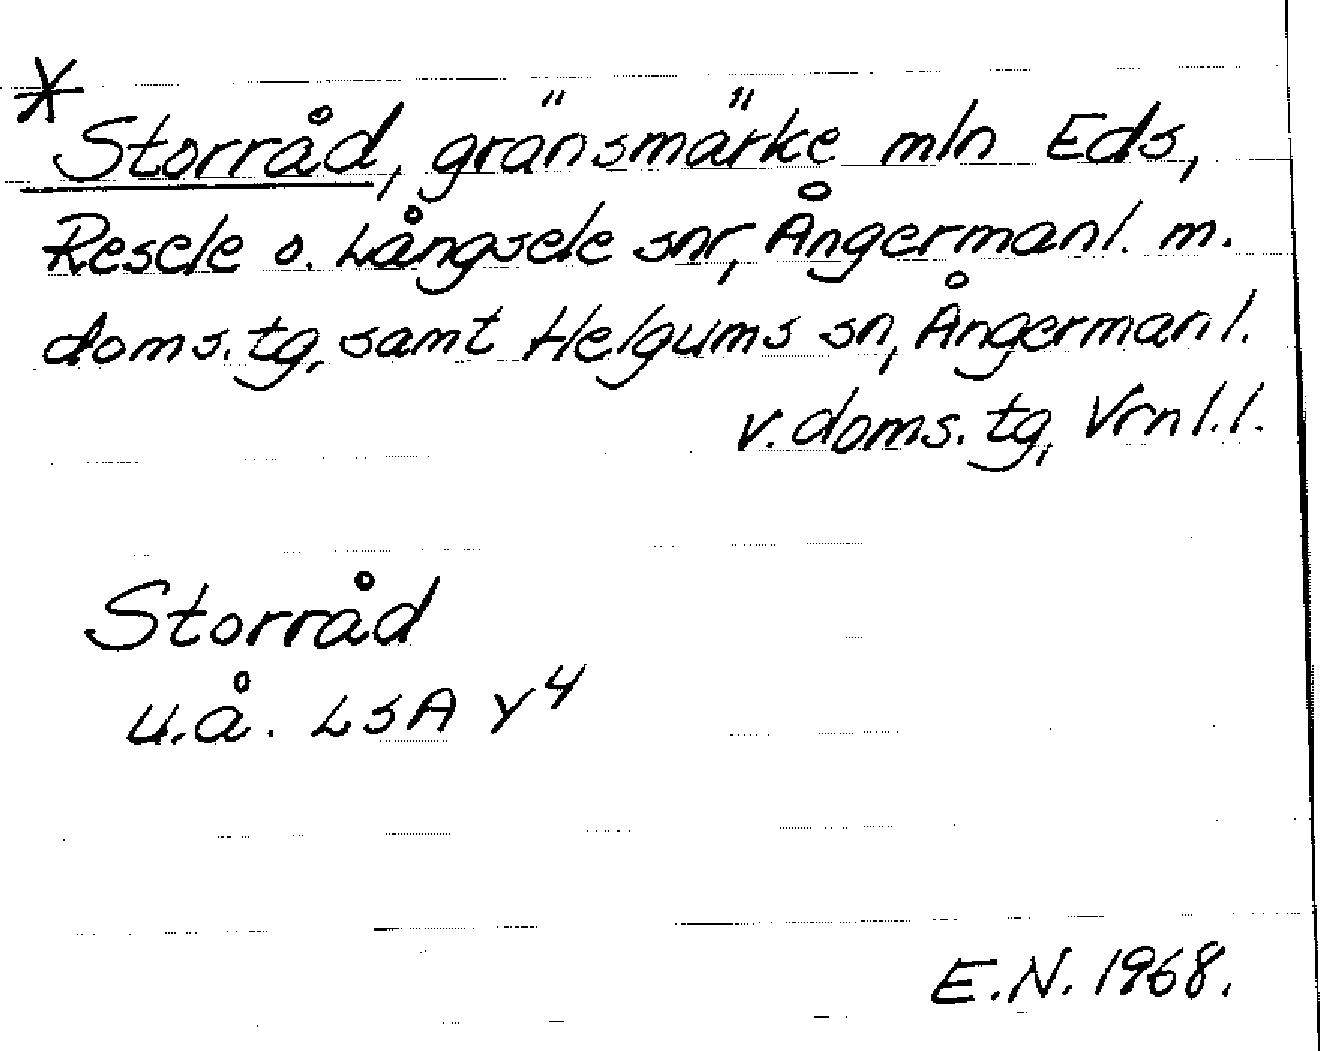 *
Storråd, gränsmärke mln Eds,
Resele o. Långsele snr, Ångermanl. m.
doms. tg, samt Helgums sn, Ångermanl.
v. doms. tg, Vrnl. l.
Storråd
u.å. LSA Y4
E.N. 1968.